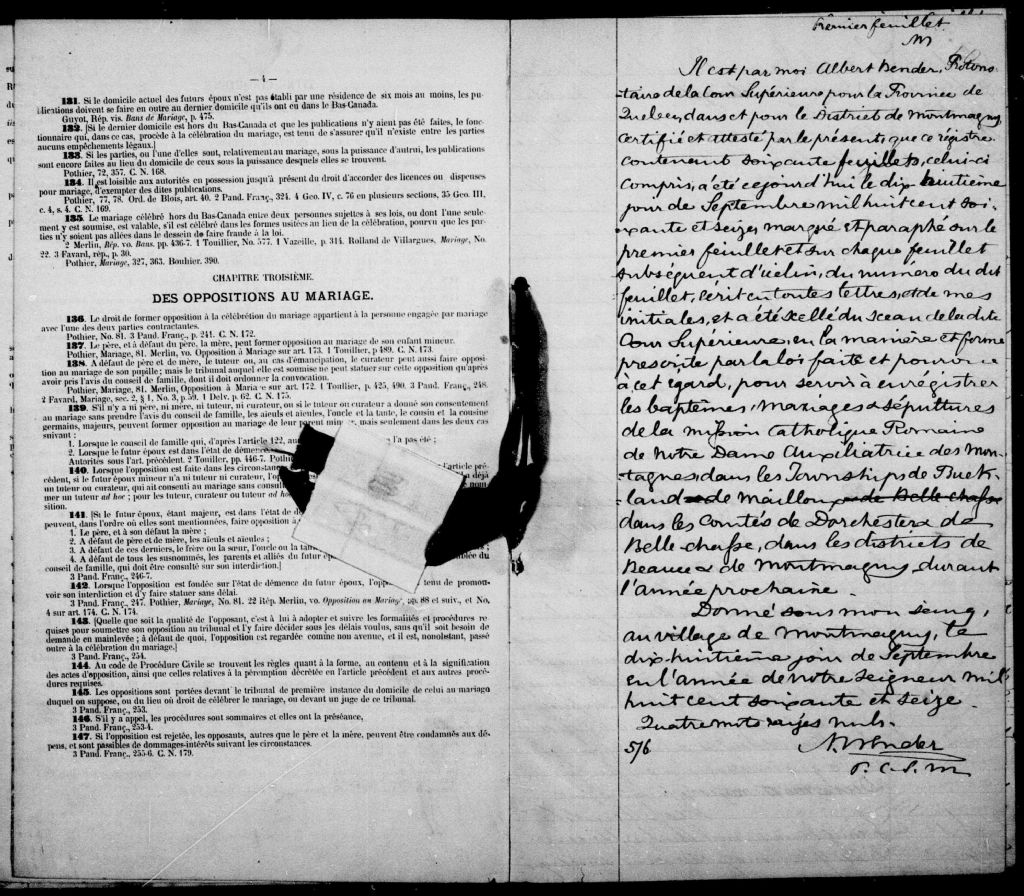 — 4 —
131. Si le domicile actuel des futurs époux n'est pas établi par une résidence de six mois au moins, les pu-
blications doivent se faire en outre au dernier domicile qu'ils ont eu dans le Bas-Canada.
Guyot, Rép. vis. Bans de Mariage, p. 475.
132. [Si le dernier domicile est hors du Bas-Canada et que les publications n'y aient pas été faites, le fonc-
tionnaire qui, dans ce cas, procède à la célébration du mariage, est tenu de s'assurer qu'il n'existe entre les parties
aucuns empêchements légaux.]
133. Si les parties, ou l'une d'elles sont, relativement au mariage, sous la puissance d'autrui, les publications
sont encore faites au lieu du domicile de ceux sous la puissance desquels elles se trouvent.
Pothier, 72, 357. C. N. 168.
134. Il est loisible aux autorités en possession jusqu'à présent du droit d'accorder des licences ou dispenses
pour mariage, d'exempter des dites publications.
Pothier, 77, 78. Ord. de Blois, art. 40. 2 Pand. Franç., 324. 4 Geo. IV, c. 76 en plusieurs sections. 35 Geo. III,
c. 4, s. 4. C. N. 169.
135. Le mariage célébré hors du Bas-Canada entre deux personnes sujettes à ses lois, ou dont l'une seule-
ment y est soumise, est valable, s'il est célébré dans les formes usitées au lieu de la célébration, pourvu que les par-
ties n'y soient pas allées dans le dessein de faire fraude à la loi.
2 Merlin, Rép. vo. Bans. pp. 436-7. 1 Touiller, No. 577. 1 Vazeille, p. 314. Rolland de Villargues, Mariage, No.
22. 3 Favard, rép., p. 30.
Pothier, Mariage, 327, 363. Bouhier. 390.
CHAPITRE TROISIÈME.
DES OPPOSITIONS AU MARIAGE.
136. Le droit de former opposition à la célébration du mariage appartient à la personne engagée par mariage
avec l'une des deux parties contractantes.
Pothier, No. 81. 3 Pand. Franç., p. 241. C. N. 172.
137. Le père, et à défaut du père, la mère, peut former opposition au mariage de son enfant mineur.
Pothier, Mariage, 81. Merlin, vo. Opposition à Mariage sur art. 173. 1 Touiller, p. 489. C. N. 173.
138. A défaut de père et de mère, le tuteur, ou, au cas d'émancipation, le curateur peut aussi faire opposi-
tion au mariage de son pupille; mais le tribunal auquel elle est soumise ne peut statuer sur cette opposition qu'après
avoir pris l'avis du conseil de famille, dont il doit ordonner la convocation.
Pothier, Mariage, 81. Merlin, Opposition à Mariage sur art. 172. 1 Toullier, p. 425, 490. 3 Pand. Franç., 248.
2 Favard, Mariage, sec. 2, § 1, No. 3, p. 59. 1 Delv. p. 62. C. N. 175.
139. S'il n'y a ni père, ni mère, ni tuteur, ni curateur, ou si le tuteur ou curateur a donné son consentement
au mariage sans prendre l'avis du conseil de famille, les aïeuls et aïeules, l'oncle et la tante, le cousin et la cousine
germains, majeurs, peuvent former opposition au mariage de leur parent mineur, mais seulement dans les deux cas
suivant :
1. Lorsque le conseil de famille qui, d'après l'article 122, au l'a pas été ;
2. Lorsque le futur époux est dans l'état de démence
Autorités sous l'art. précédent. 2 Touiller, pp. 446-7. Pothi
140. Lorsque l'opposition est faite dans les circonstanc l'article pré-
cédent, si le futur époux mineur n'a ni tuteur ni curateur, l'op déjà
un tuteur ou curateur, qui ait consenti au mariage sans consult nom-
mer un tuteur ad hoc ; pour les tuteur, curateur ou tuteur ad hoc
sition.
141. [Si le futur époux, étant majeur, est dans l'état de d
peuvent, dans l'ordre où elles sont mentionnées, faire opposition à
1. Le père, et à son défaut la mère ;
2. A défaut de père et de mère, les aïeuls et aïeules ;
3. A défaut de ces derniers, le frère ou la sœur, l'oncle ou la tant
4. A défaut de tous les susnommés, les parents et alliés du futur ép
conseil de famille, qui doit être consulté sur son interdiction.]
3 Pand. Franç., 246-7.
142. Lorsque l'opposition est fondée sur l'état de démence du futur époux, l'oppo tenu de promou-
voir son interdiction et d'y faire statuer sans délai.
3 Pand. Franç., 247. Pothier, Mariage, No. 81. 22 Rép. Merlin, vo. Opposition au Mariage, pp. 88 et suiv., et No,
4 sur art. 174. C. N. 174.
143. [Quelle que soit la qualité de l'opposant, c'est à lui à adopter et suivre les formalités et procédures re-
quises pour soumettre son opposition au tribunal et l'y faire décider sous les délais voulus, sans qu'il soit besoin de
demande en mainlevée ; à défaut de quoi, l'opposition est regardée comme non avenue, et il est, nonobstant, passé
outre à la célébration du mariage.]
3 Pand. Franç., 254.
144. Au code de Procédure Civile se trouvent les règles quant à la forme, au contenu et à la signification
des actes d'opposition, ainsi que celles relatives à la péremption décrétée en l'article précédent et aux autres procé-
dures requises.
145. Les oppositions sont portées devant le tribunal de première instance du domicile de celui au mariage
duquel on suppose, ou du lieu où droit de célébrer le mariage, ou devant un juge de ce tribunal.
3 Pand. Franç., 253.
146. S'il y a appel, les procédures sont sommaires et elles ont la préséance,
3 Pand. Franç., 253-4.
147. Si l'opposition est rejetée, les opposants, autres que le père et la mère, peuvent être condamnés aux dé-
pens, et sont passibles de dommages-intérêts suivant les circonstances.
3 Pand. Franç., 255-6. C. N. 179.
Premier feuillet.
Il est par moi Albert Bender, Protono-
taire de la Cour Supérieure pour la Province de
Quebec, dans et pour le District de Montmagny
certifié et attesté par le présent, que ce régistre
contenant soixante feuillets, celui-ci
compris, a été ce jour d'hui le dix huitième
jour de Septembre mil huit cent soi-
xante et seize, marqué et paraphé sur le
premier feuillet et sur chaque feuillet
subséquent d'icelui, du numéro du dit
feuillet, écrit en toutes lettres, et de mes
initiales, et a été scellé du sceau de la dite
Cour Supérieure, en la manière et forme
prescrite par la loi faite et pourvue
à cet égard, pour servir à enrégistrer
les baptêmes, mariages & sépultures
de la mission Catholique Romaine
de Notre Dame Auxiliatrice des Mon-
tagnes dans les Townships de Buck-
land et de Mailloux de Belle chasse
dans les Comtés de Dorchester & de
Belle-chasse, dans les districts de
Beauce & de Montmagny, durant
l'année prochaine.
Donné sous mon seing,
au village de Montmagny, le
dix huitième jour de Septembre
en l'année de notre Seigneur mil
huit cent soixante et seize.
Quatre mots rayés nuls.
576
A. Bender
P. C. S. M